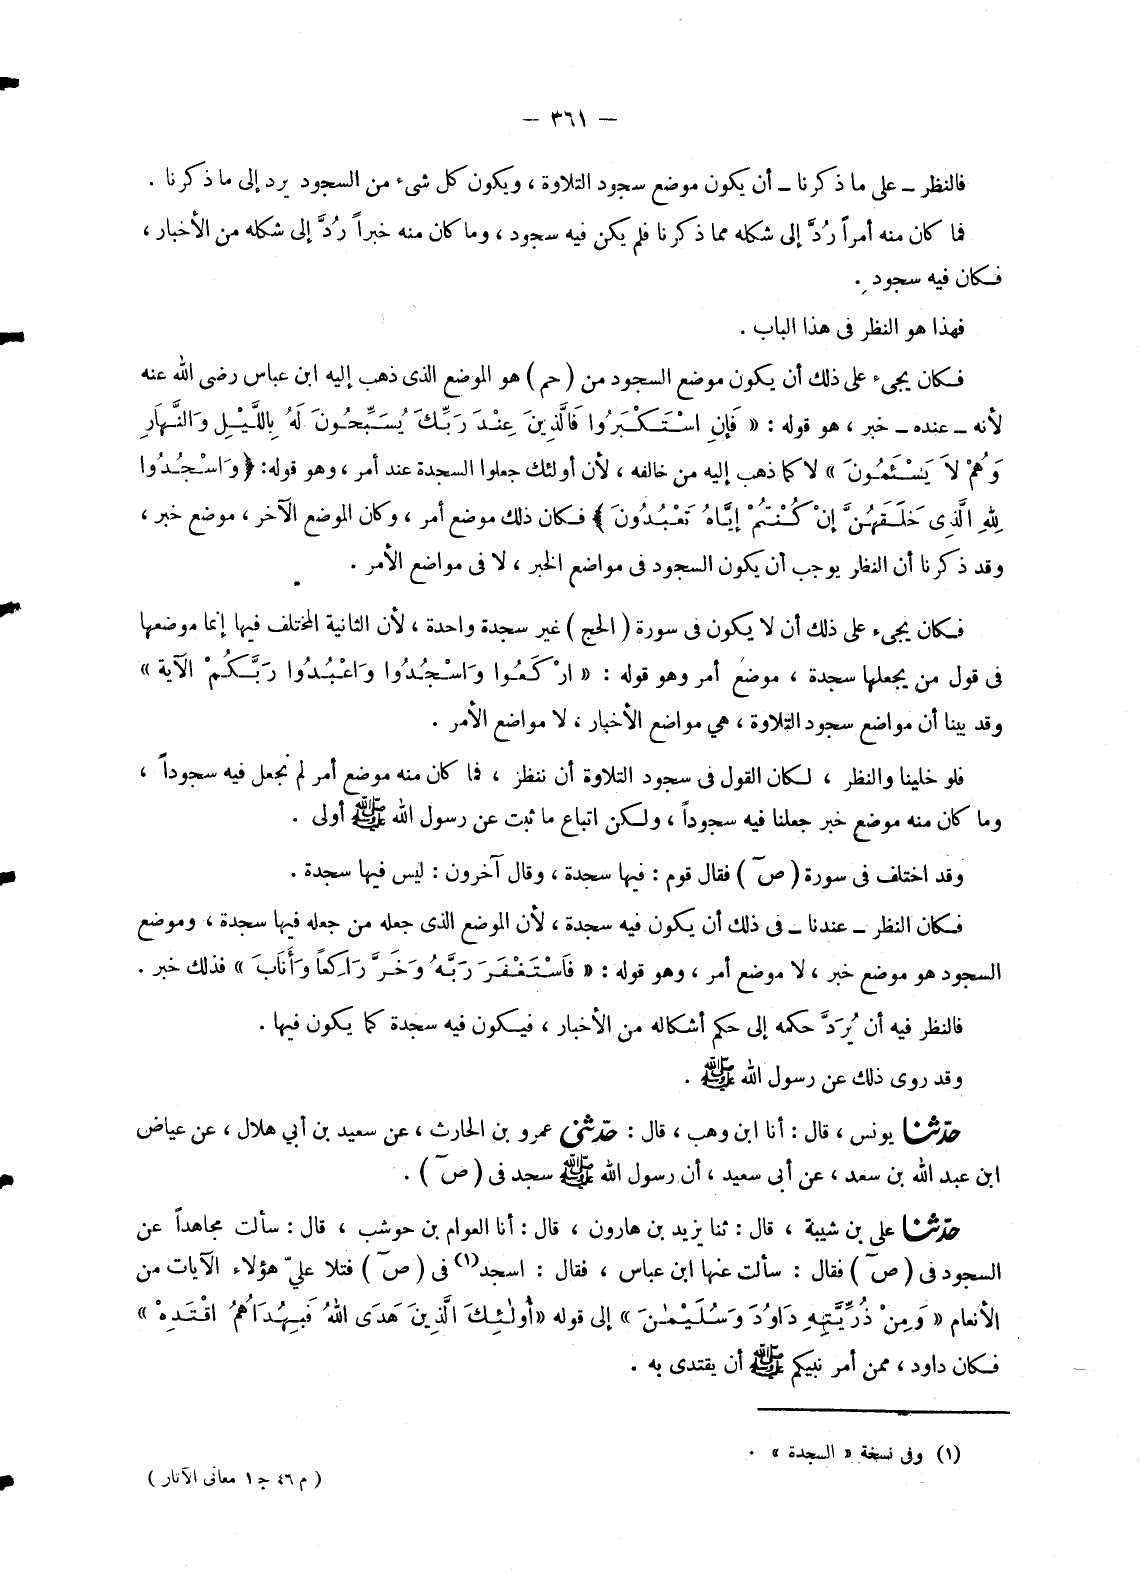 — ٣٦١ —
فالنظر ــ على ما ذكرنا ــ أن يكون موضع سجود التلاوة ، ويكون كل شىء من السجود يرد إلى ما ذكرنا .
فما كان منه أمراً رُدَّ إلى شكله مما ذكرنا فلم يكن فيه سجود ، وما كان منه خبراً رُدَّ إلى شكله من الأخبار ،
فكان فيه سجود .
فهذا هو النظر فى هذا الباب .
فكان يجىء على ذلك أن يكون موضع السجود من ( حم ) هو الموضع الذى ذهب إليه ابن عباس رضى الله عنه
لأنه ــ عنده ــ خبر ، هو قوله : « فَإِنِ اسْتَكْبَرُوا فَالَّذِينَ عِنْدَ رَبِّكَ يُسَبِّحُونَ لَهُ بِاللَّيْلِ وَالنَّهَارِ
وَهُمْ لاَ يَسْئَمُونَ » لا كما ذهب إليه من خالفه ، لأن أولئك جعلوا السجدة عند أمر ، وهو قوله: ﴿ وَاسْجُدُوا
لِلهِ الَّذِى خَلَقَهُنَّ إِنْ كُنْتُمْ إِيَّاهُ تَعْبُدُونَ ﴾ فكان ذلك موضع أمر ، وكان الموضع الآخر ، موضع خبر ،
وقد ذكرنا أن النظر يوجب أن يكون السجود فى مواضع الخبر ، لا فى مواضع الأمر .
فكان يجىء على ذلك أن لا يكون فى سورة ( الحج ) غير سجدة واحدة ، لأن الثانية المختلف فيها إنما موضعها
فى قول من يجعلها سجدة ، موضع أمر وهو قوله : « ارْكَعُوا وَاسْجُدُوا وَاعْبُدُوا رَبَّكُمْ الآية »
وقد بينا أن مواضع سجود التلاوة ، هي مواضع الأخبار ، لا مواضع الأمر .
فلو خلينا والنظر ، لكان القول فى سجود التلاوة أن ننظر ، فما كان منه موضع أمر لم نجعل فيه سجوداً ،
وما كان منه موضع خبر جعلنا فيه سجوداً ، ولكن اتباع ما ثبت عن رسول الله ﷺ أولى .
وقد اختلف فى سورة ( صٓ ) فقال قوم : فيها سجدة ، وقال آخرون : ليس فيها سجدة .
فكان النظر ــ عندنا ــ فى ذلك أن يكون فيه سجدة ، لأن الموضع الذى جعله من جعله فيها سجدة ، وموضع
السجود هو موضع خبر ، لا موضع أمر ، وهو قوله : « فَاسْتَغْفَرَ رَبَّهُ وَخَرَّ رَاكِعاً وَأَنَابَ » فذلك خبر .
فالنظر فيه أن يُرَدَّ حكمه إلى حكم أشكاله من الأخبار ، فيكون فيه سجدة كما يكون فيها .
وقد روى ذلك عن رسول الله ﷺ .
حدّثنا يونس ، قال : أنا ابن وهب ، قال : حدّثنى عمرو بن الحارث ، عن سعيد بن أبي هلال ، عن عياض
ابن عبد الله بن سعد ، عن أبي سعيد ، أن رسول الله ﷺ سجد فى ( صٓ ) .
حدّثنا على بن شيبة ، قال : ثنا يزيد بن هارون ، قال : أنا العوام بن حوشب ، قال : سألت مجاهداً عن
السجود فى ( صٓ ) فقال : سألت عنها ابن عباس ، فقال : اسجد(١) فى ( صٓ ) فتلا عليّ هؤلاء الآيات من
الأنعام « وَمِنْ ذُرِّيَّتِهِ دَاوُدَ وَسُلَيْمٰنَ » إلى قوله «أُولٰئِكَ الَّذِينَ هَدَى اللهُ فَبِهُدَاهُمُ اقْتَدِهْ »
فكان داود ، ممن أمر نبيكم ﷺ أن يقتدى به .
(١) وفى نسخة « السجدة » .
( م ٤٦ ج ١ معانى الآثار )